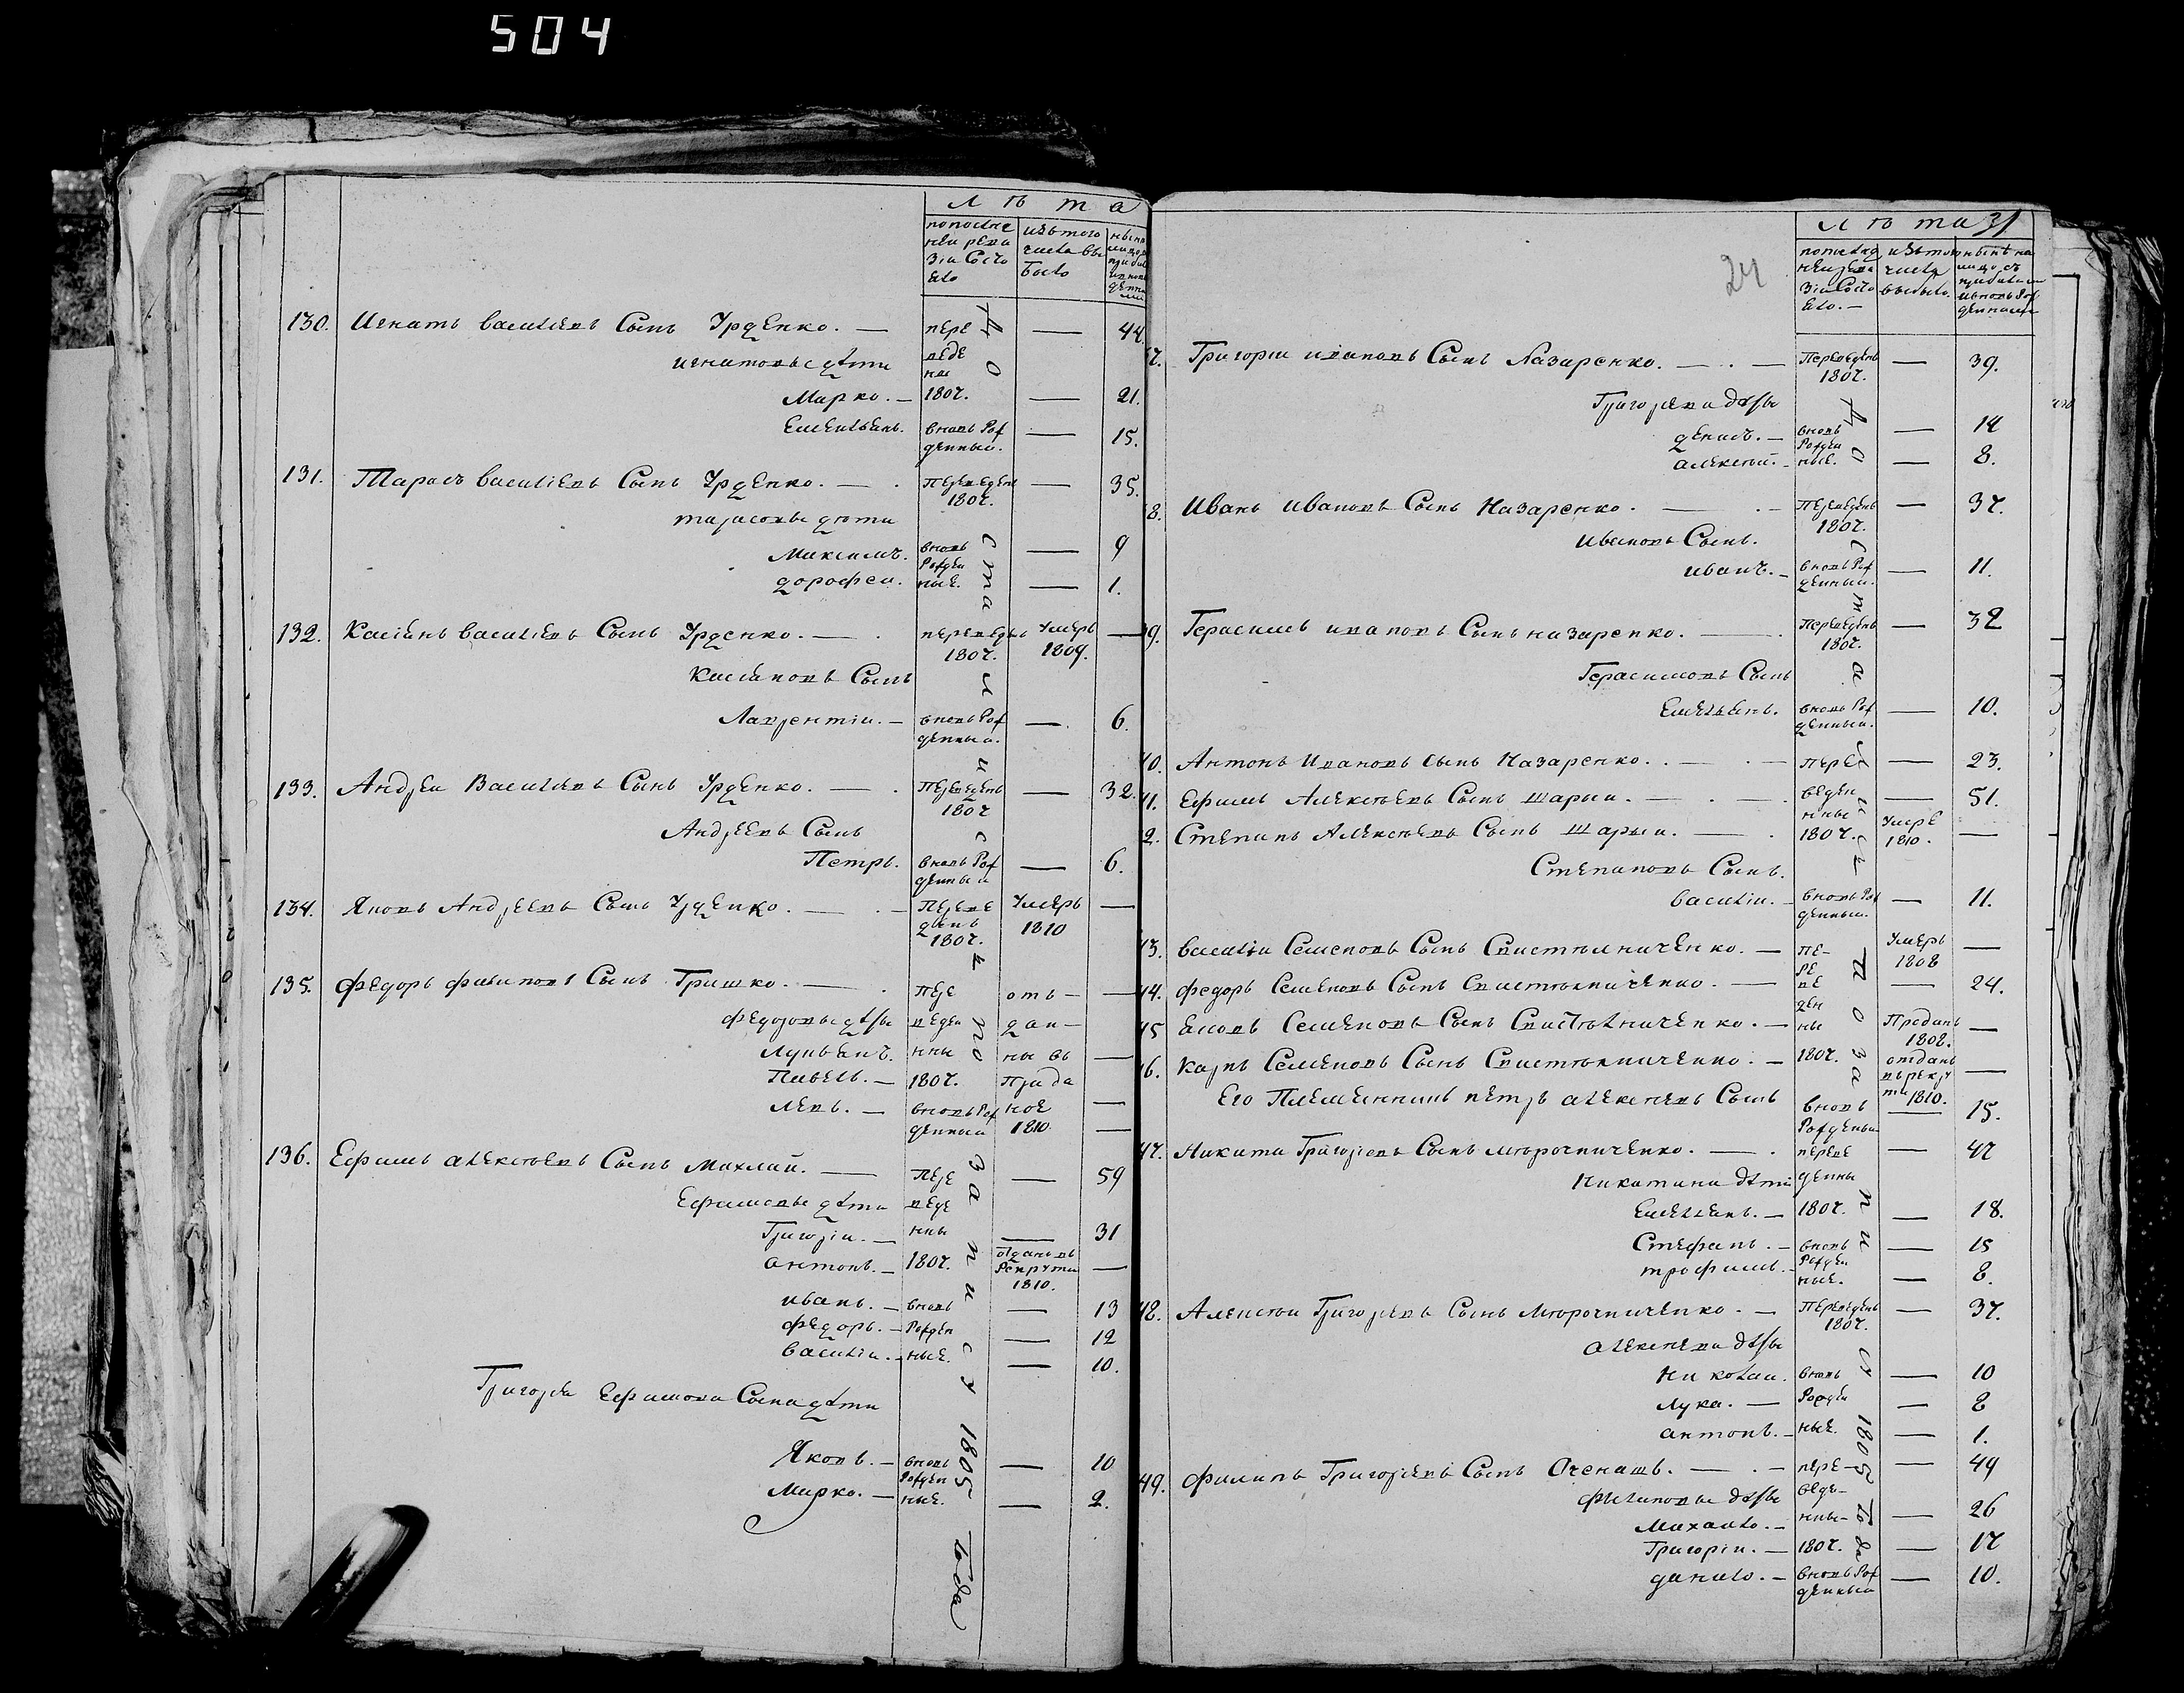 504
Лѣта
по последней ревизiи состояло
изъ того числа выбыло
130. Игнатъ Васильевъ Сынъ Урденко. — переведены 1807. — 44.
Игнатовы дѣти
Марко. — — 21.
Емельянъ. вновь рожденный. — 15.
131. Тарасъ Васильевъ Сынъ Урденко. — переведенъ 1807. — 35.
Тарасовы дѣти
Максимъ. вновь рожденные. — 9
Дорофеи. — 1.
132. Касіянъ Васильевъ Сынъ Урденко. — переведенъ 1807. Умеръ 1809. —
Касіяновъ Сынъ
Лаврентiи. — вновь рожденный. — 6.
133. Андреи Васильевъ Сынъ Урденко. — переведенъ 1807 — 32.
Андреевъ Сынъ
Петръ. вновь рожденный — 6.
134. Яковъ Андреевъ Сынъ Урденко. — переведенъ 1807. Умеръ 1810 —
135. Федоръ Филиповъ Сынъ Гришко. — переведенны 1807. отданны въ приданое 1810. —
Федоровы дѣти
Лукьянъ. —
Павелъ. —
Левъ. — вновь рожденный —
136. Ефимъ Алексѣевъ Сынъ Михлай. — переведенны 1807. — 59
Ефимовы дѣти
Григорiи. — — 31
Антонъ. — отданъ въ рекруты 1810. —
Иванъ. — вновь рожденные. — 13
Федоръ. — — 12
Василiи. — — 10.
Григорья Ефимова Сына дѣти
Яковъ. — вновь рожденные. — 10
Марко. — — 2.
1805 Года
24
Лѣта 31
по последней ревизiи состояло. —
изъ того числа выбыло.
7. Григорiи Ивановъ Сынъ Назаренко. — переведенъ 1807. — 39.
Григорьева дѣти
Денисъ. — вновь рожденные. — 14
Алексѣй. — — 8.
8. Иванъ Ивановъ Сынъ Назаренко. — переведенъ 1807. — 37.
Ивановъ Сынъ.
Иванъ. — вновь рожденный. — 11.
39. Герасимъ Ивановъ Сынъ Назаренко. — переведенъ 1807. — 32
Герасимовъ Сынъ
Емельянъ. вновь рожденный. — 10.
40. Антонъ Ивановъ Сынъ Назаренко. — переведенны 1807. — 23.
41. Ефимъ Алексѣевъ Сынъ Шарыи. — — 51.
2. Степанъ Алексѣевъ Сынъ Шарыи. — Умре 1810. —
Степановъ Сынъ.
Василiи. — вновь рожденный. — 11.
43. Василiи Семеновъ Сынъ Свистѣльниченко. — переведенны 1807. Умеръ 1808 —
44. Федоръ Семеновъ Сынъ Свистѣльниченко. — — 24.
45 Яковъ Семеновъ Сынъ Свистѣльниченко. — Проданъ 1808. —
46. Карпъ Семеновъ Сынъ Свистѣльниченко. — отданъ въ рекруты 1810. —
Его Племянникъ Петръ Алексѣевъ Сынъ вновь рожденный — 15.
47. Никита Григорьевъ Сынъ Мѣрочниченко. — переведенны 1807. — 47
Никитина дѣти
Емельянъ. — — 18.
Стефанъ. — вновь рожденные. — 15
Трофимъ. — — 8.
48. Алексѣи Григорьевъ Сынъ Мѣрочниченко. — переведенъ 1807. — 37.
Алексѣева дѣти
Николаи. вновь рожденные. — 10
Лука. — — 8
Антонъ. — — 1.
49. Филипъ Григорьевъ Сынъ Оченашъ. — переведенны 1807. — 49
Филиповы дѣти
Михаило. — — 26
Григорiи. — — 17
Данило. — вновь рожденный — 10.
1805 Года